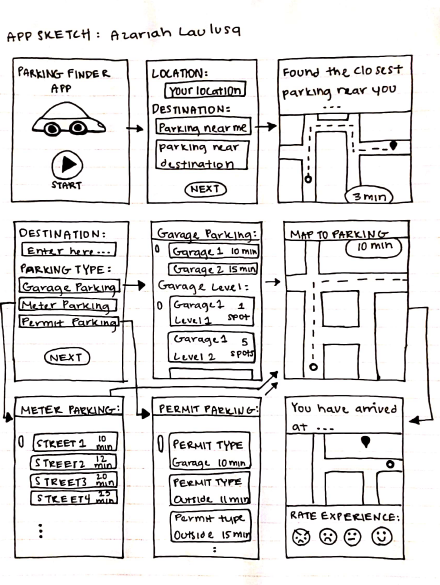 APP SKETCH: Azariah Laulusa
PARKING FINDER
APP
START
LOCATION:
Your location
DESTINATION:
Parking near me
parking near
destination
NEXT
Found the closest
parking near you
...
3 min
DESTINATION:
Enter here...
PARKING TYPE:
Garage Parking
Meter Parking
Permit Parking
NEXT
Garage Parking:
Garage 1 10 min
Garage 2 15 min
Garage Level:
Garage 1 1
Level 1 spot
Garage 1 5
Level 2 spots
MAP TO PARKING
10 min
METER PARKING:
STREET 1 10 min
STREET 2 12 min
STREET 3 20 min
STREET 4 25 min
PERMIT PARKING:
PERMIT TYPE
Garage 10 min
PERMIT TYPE
Outside 11 min
Permit type
Outside 15 min
You have arrived
at ...
RATE EXPERIENCE: